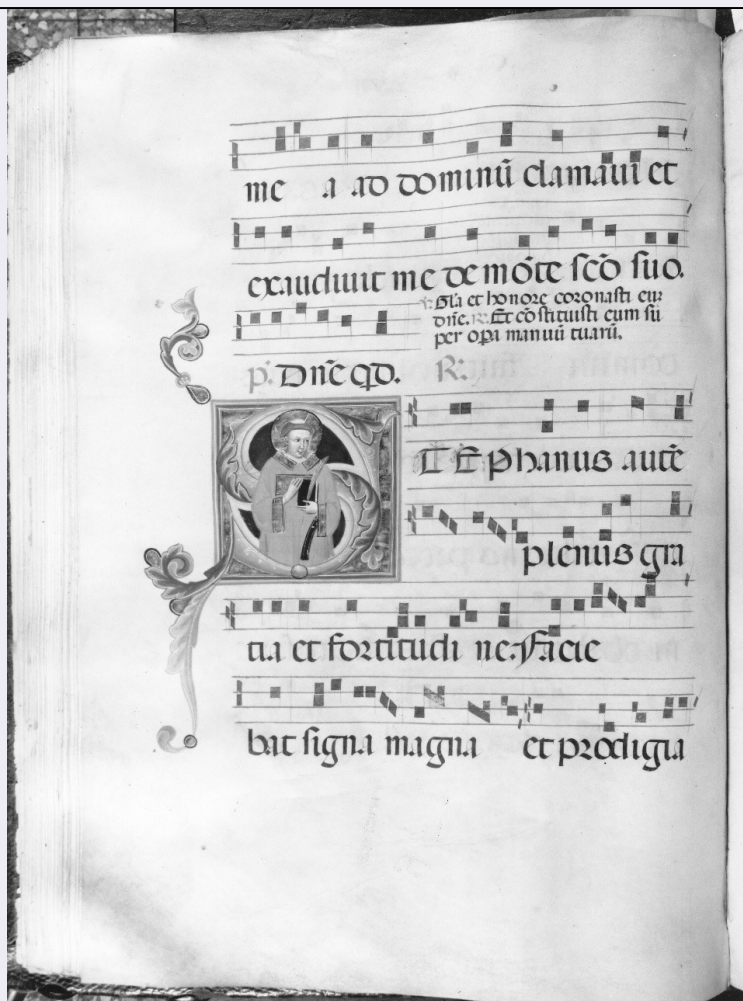 me a ad dominū clamaui et
exaudiuit me de mōte scō suo.
℣. Gl̄a et honore coronasti eū
dn̄e. ℟. Et cōstituisti eum sū
per oꝑa manuū tuarū.
p̄. Dn̄e qd. R̄.
STEPhanus autē
plenus gra
tia et fortitudi ne. Facie
bat signa magna et prodigia